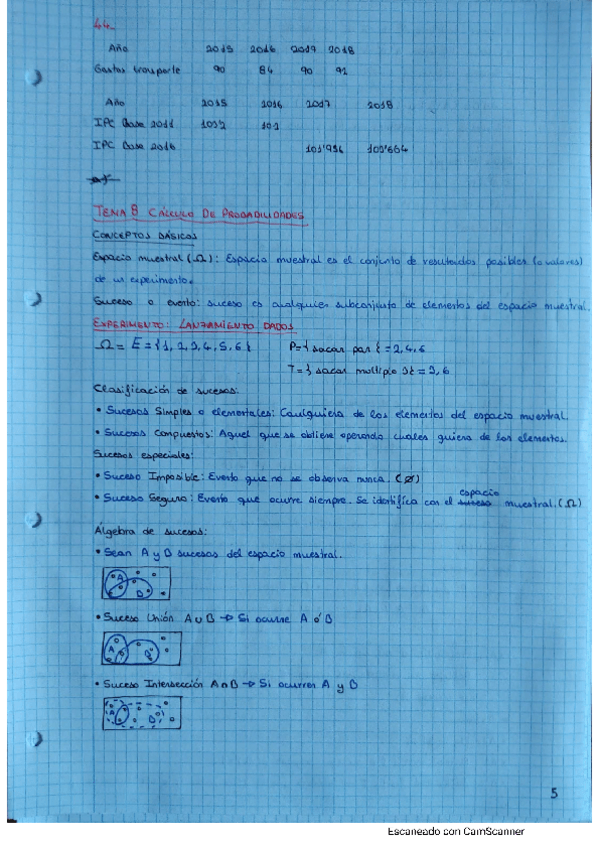 44.
Año 2015 2016 2017 2018
Gastos transporte 90 84 90 92
Año 2015 2016 2017 2018
IPC Base 2011
IPC Base 2016 101'956 103'664
TEMA 8 CÁLCULO DE PROBABILIDADES
CONCEPTOS BÁSICOS
Espacio muestral (Ω): Espacio muestral es el conjunto de resultados posibles (o valores)
de un experimento.
Suceso o evento: suceso es cualquier subconjunto de elementos del espacio muestral.
EXPERIMENTO: LANZAMIENTO DADOS
Ω = E = {1, 2, 3, 4, 5, 6} P={sacar par} = 2, 4, 6
T={sacar multiplo 3} = 3, 6
Clasificación de sucesos:
• Sucesos Simples o elementales: Caulquiera de los elementos del espacio muestral.
• Sucesos Compuestos: Aquel que se obtiene operando cuales quiera de los elementos.
Sucesos especiales:
• Suceso Imposible: Evento que no se observa nunca. (Ø)
• Suceso Seguro: Evento que ocurre siempre. Se identifica con el espacio muestral. (Ω)
Algebra de sucesos:
• Sean A y B sucesos del espacio muestral.
A B
• Suceso Unión A∪B → Si ocurre A ó B
A B
• Suceso Intersección A∩B → Si ocurren A y B
A B
5
Escaneado con CamScanner